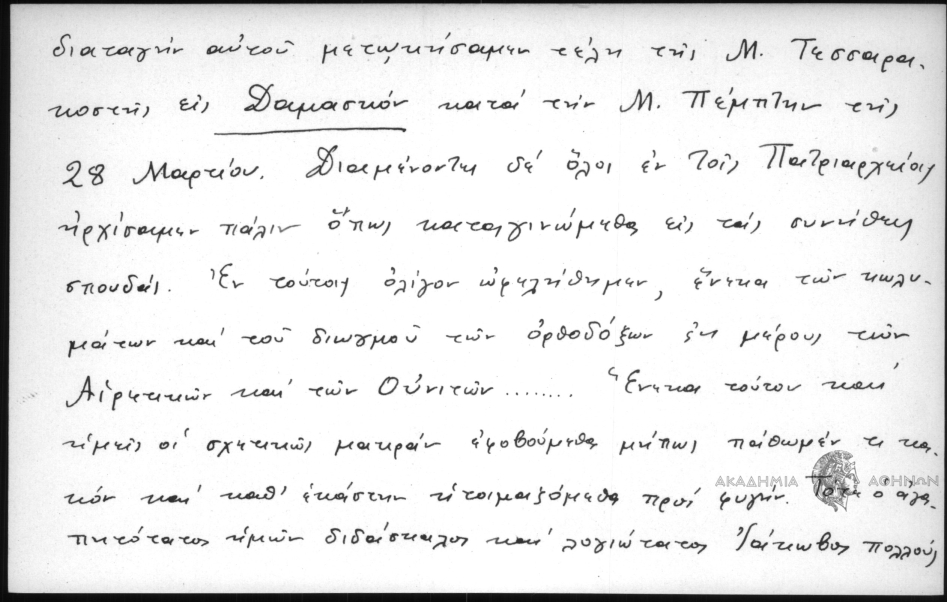 διαταγήν αὐτοῦ μετῳκήσαμεν τέλη τῆς Μ. Τεσσαρα-
κοστῆς εἰς Δαμασκόν κατά τήν Μ. Πέμπτην τῆς
28 Μαρτίου. Διαμένοντες δέ ὅλοι ἐν τοῖς Πατριαρχείοις
ἠρχίσαμεν πάλιν ὅπως καταγινώμεθα εἰς τάς συνήθεις
σπουδάς. Ἐν τούτοις ὀλίγον ὠφελήθημεν, ἕνεκα τῶν κωλυ-
μάτων καί τοῦ διωγμοῦ τῶν ὀρθοδόξων ἐκ μέρους τῶν
Αἱρετικῶν καί τῶν Οὐνιτῶν ........ Ἕνεκα τούτου καί
ἡμεῖς οἱ σχετικῶς μακράν ἐφοβούμεθα μήπως πάθωμέν τι κα-
κόν καί καθ' ἑκάστην ἡτοιμαζόμεθα πρός φυγήν. Τότε ὁ ἀγα-
πητότατος ἡμῶν διδάσκαλος καί λογιώτατος Ἰάκωβος πολλούς
ΑΚΑΔΗΜΙΑ ΑΘΗΝΩΝ